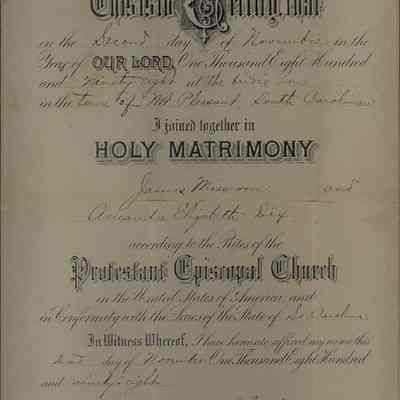 This is to Certify, that
on the Second day of November in the
Year of OUR LORD, One Thousand Eight Hundred
and ninety eight at the
in the town of Mt Pleasant, South Carolina
I joined together in
HOLY MATRIMONY
James and
Amanda Elizabeth Dix
according to the Rites of the
Protestant Episcopal Church
in the United States of America, and
in Conformity with the Laws of the State of So Carolina
In Witness Whereof, I have hereunto affixed my name this
2nd day of November One Thousand Eight Hundred
and ninety eight